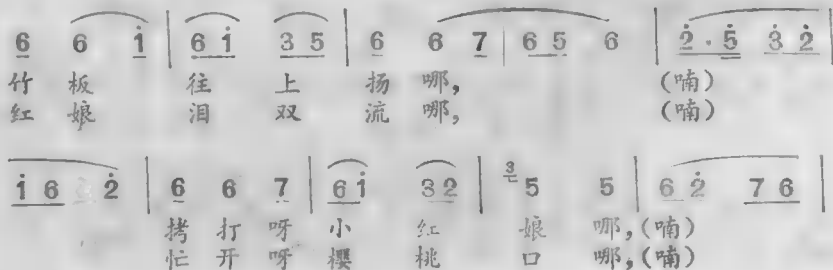 6 6 i̇ | 6 i̇ 3 5 | 6 6 7 | 6 5 6 | 2̇ · 5̇ 3̇ 2̇ |
竹 板 往 上 扬 哪, (喃)
红 娘 泪 双 流 哪, (喃)
i̇ 6 2̇ | 6 6 7 | 6 i̇ 3 2 | 3 5 5 | 6 2̇ 7 6 |
拷 打 呀 小 红 娘 哪, (喃)
忙 开 呀 樱 桃 口 哪, (喃)